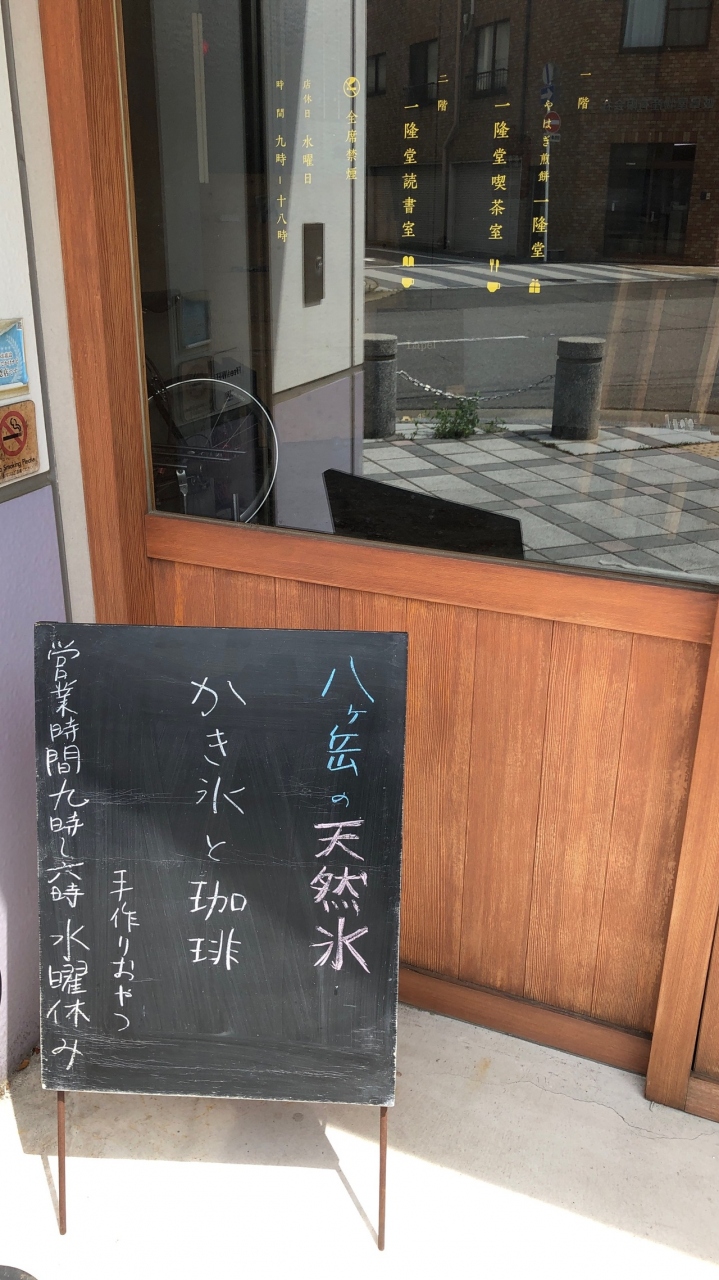 一階
やはぎ煎餅 一隆堂
一隆堂喫茶室
二階
一隆堂読書室
全席禁煙
店休日 水曜日
時間 九時－十八時
八ヶ岳の天然氷
かき氷と珈琲
手作りおやつ
営業時間九時〜六時 水曜休み